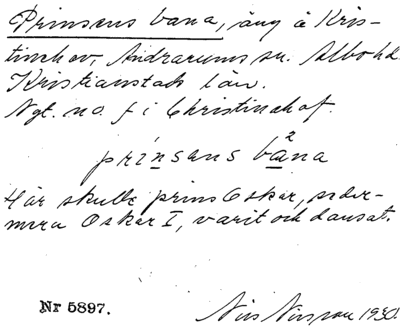 Prinsens bana, äng å Kris-
tinehov, Andrarums sn. Albo hd
Kristianstads län.
Ngt. no. f i Christinehof.
prinsens bana
2
Här skulle prins Oskar, seder-
mera Oskar I, varit och dansat.
Nr 5897.
Nils Nilsson 1930.